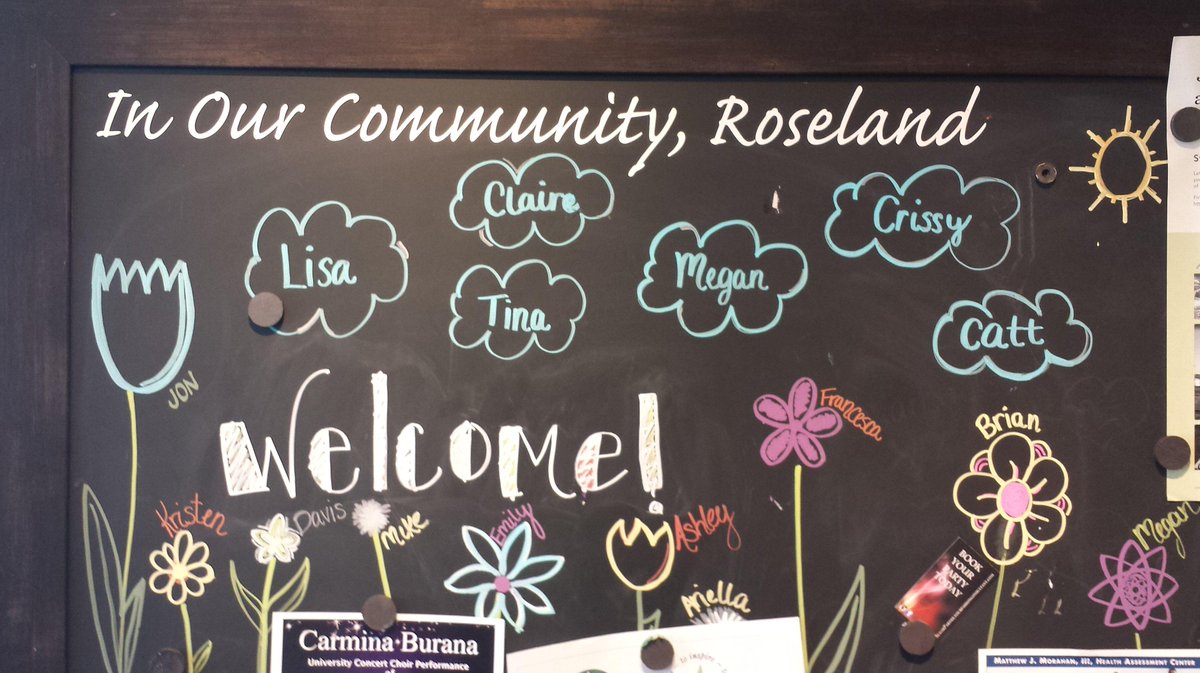 In Our Community, Roseland
Claire
Crissy
Lisa
Megan
Tina
catt
JON
Welcome!
Francesca
Brian
Kristen
Davis
Mike
Emily
Ashley
Megan
Ariella
BOOK
YOUR
PARTY
TODAY
Carmina·Burana
University Concert Choir Performance
of
to inspire
Matthew J. Morahan, III, Health Assessment Center